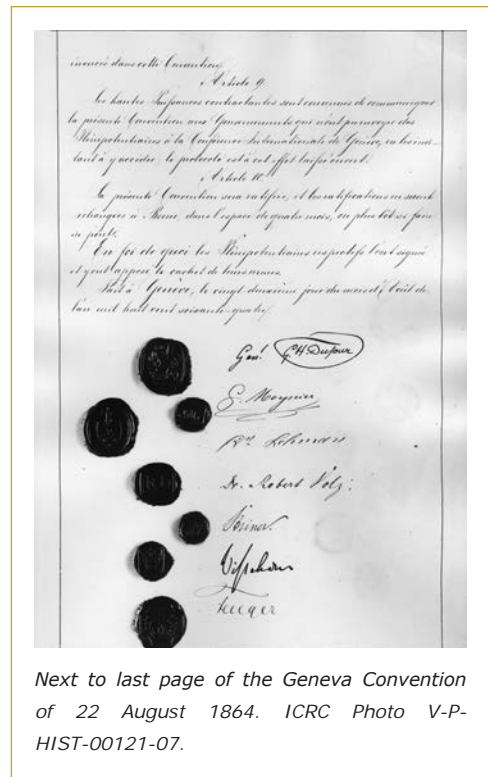 énoncés dans cette Convention.
Article 9.
Les hautes Puissances contractantes sont convenues de communiquer
la présente Convention aux Gouvernements qui n'ont pu envoyer des
Plénipotentiaires à la Conférence Internationale de Genève, en les invi-
tant à y accéder; le protocole est à cet effet laissé ouvert.
Article 10.
La présente Convention sera ratifiée, et les ratifications en seront
échangées à Berne, dans l'espace de quatre mois, ou plus tôt si faire
se peut.
En foi de quoi les Plénipotentiaires respectifs l'ont signé
et y ont apposé le cachet de leurs armes.
Fait à Genève, le vingt deuxième jour du mois d'Août de
l'an mil huit cent soixante-quatre.
Genl. GH. Dufour
G. Moynier
Dr. Lehmann
Dr. Robert Volz.
Steiner.
Visschers
Next to last page of the Geneva Convention
of 22 August 1864. ICRC Photo V-P-
HIST-00121-07.